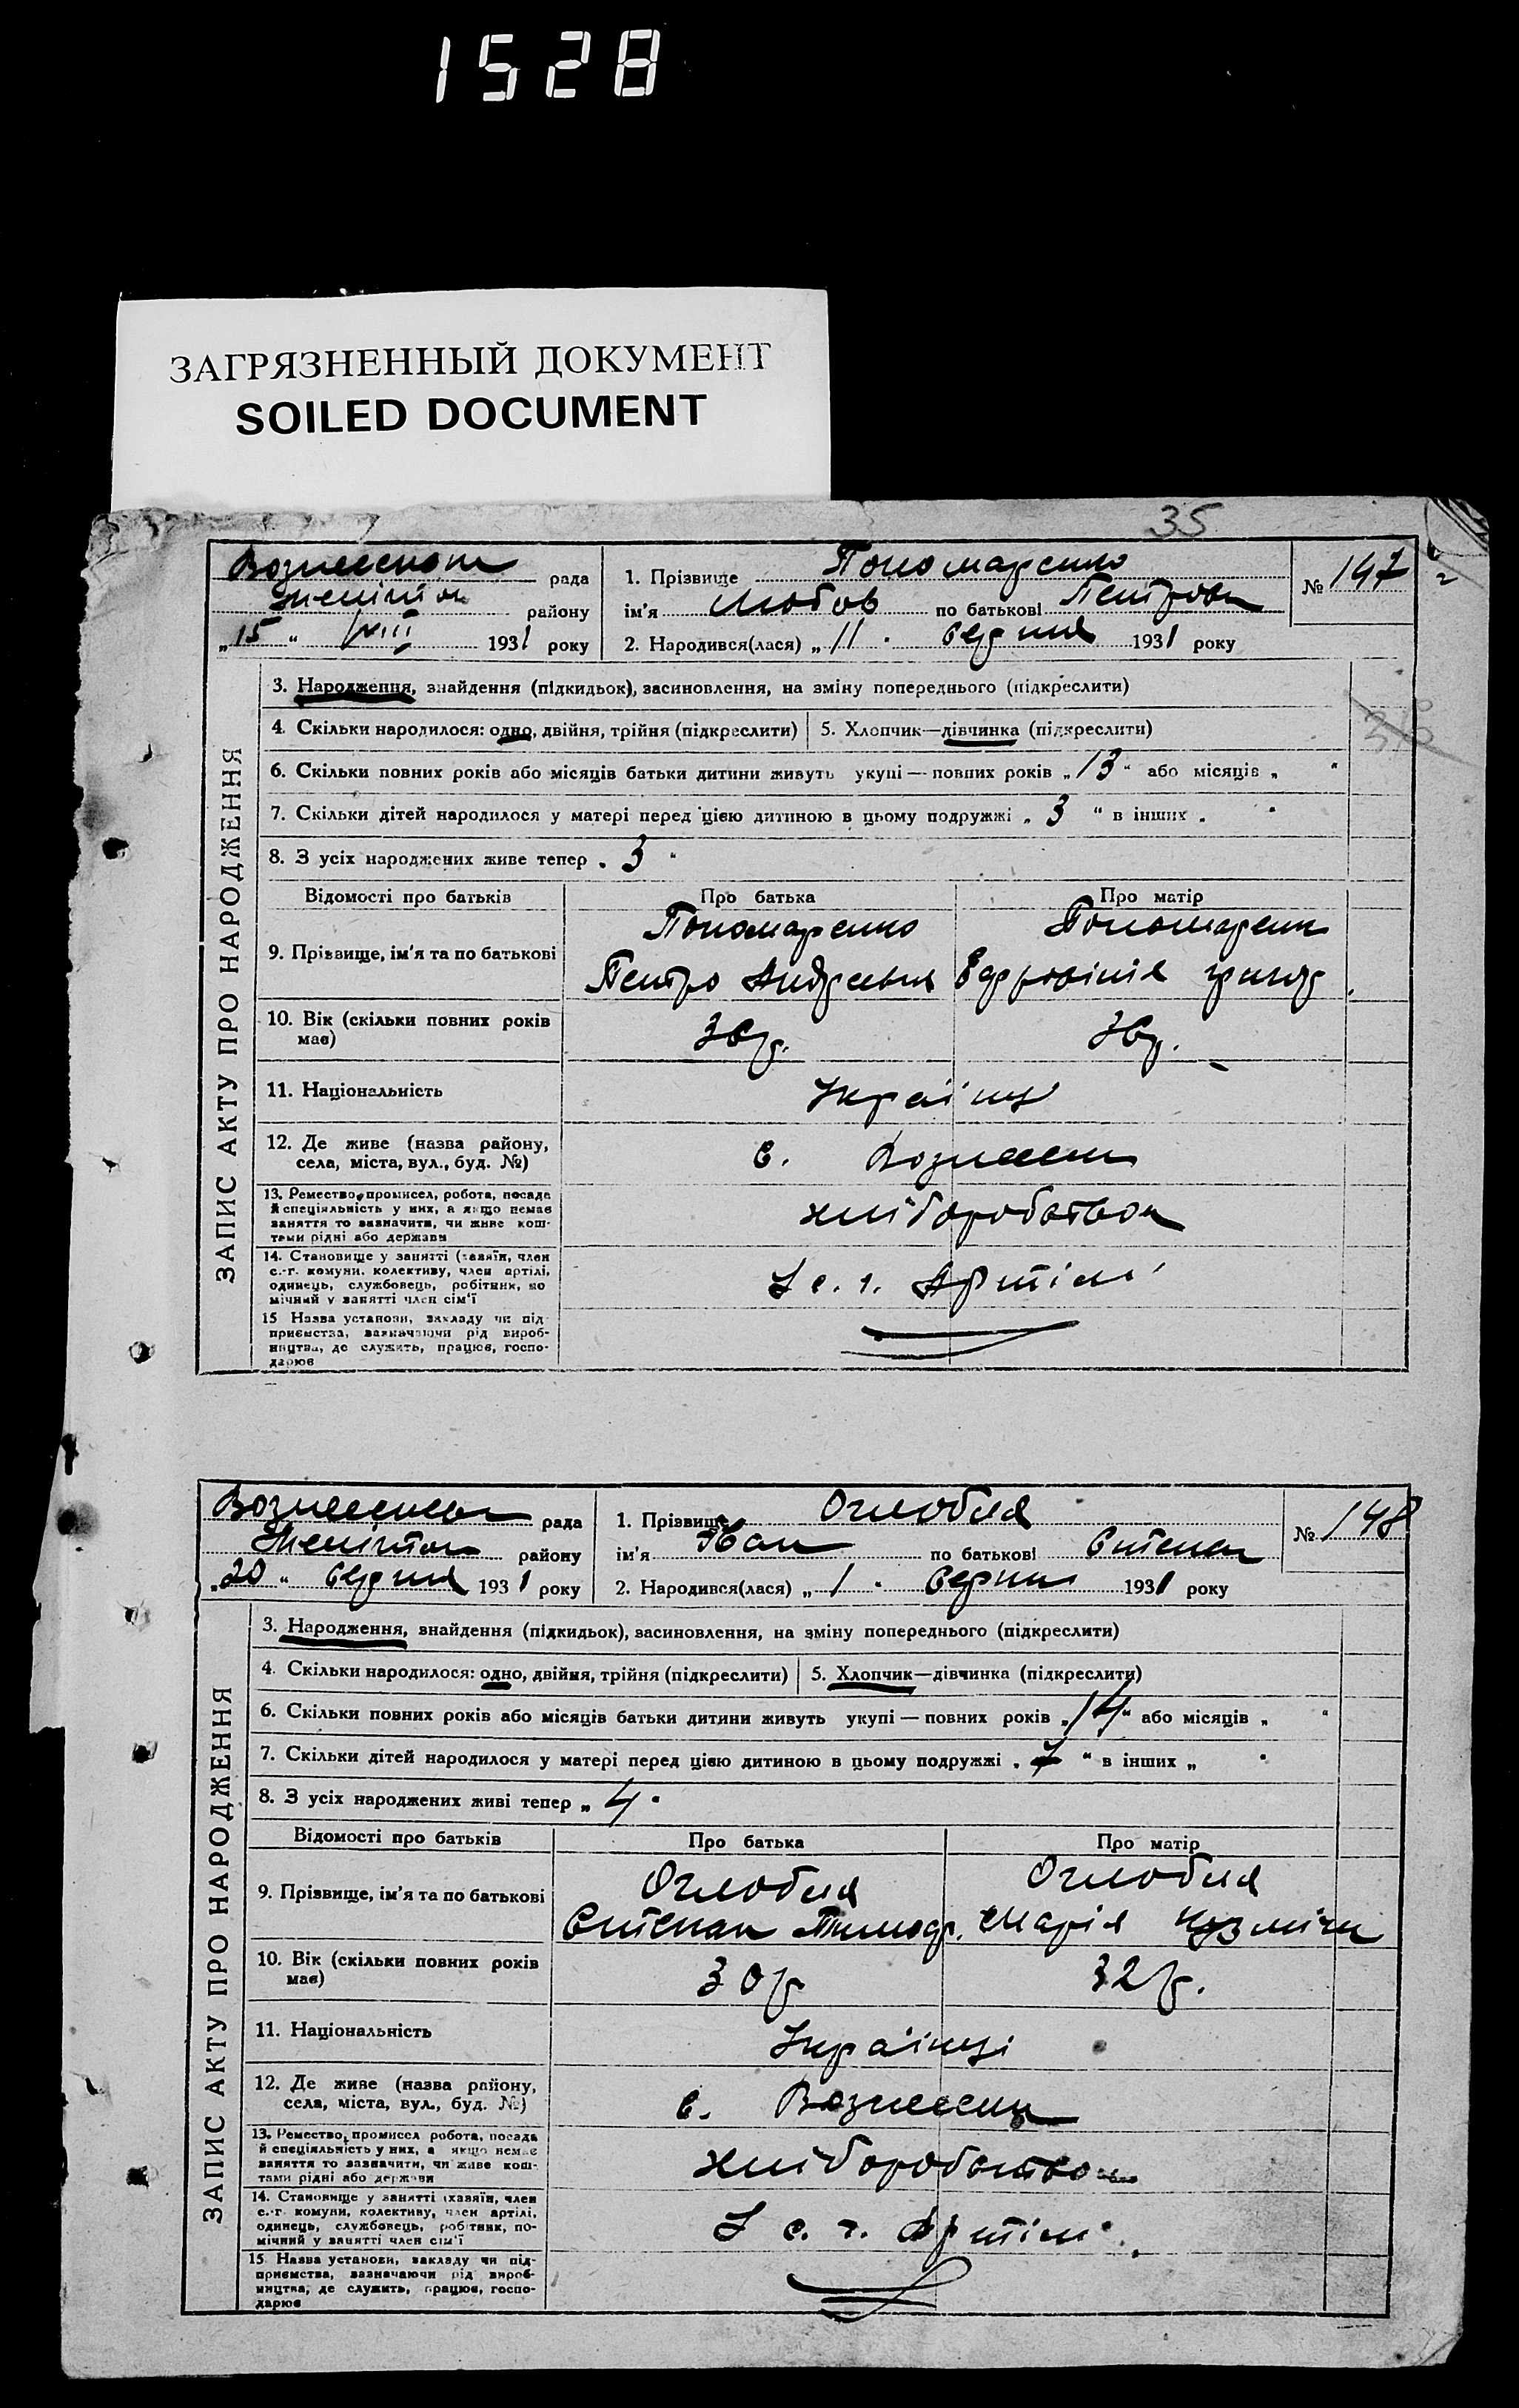 1528
ЗАГРЯЗНЕННЫЙ ДОКУМЕНТ
SOILED DOCUMENT
35
рада
району
„15“ VIII 1931 року
1. Прізвище Пономаренко
ім'я Любов по батькові Петровн
2. Народився(лася) „11" серпня 1931 року
№ 147
ЗАПИС АКТУ ПРО НАРОДЖЕННЯ
3. Народження, знайдення (підкидьок), засиновлення, на зміну попереднього (підкреслити)
4. Скільки народилося: одно, двійня, трійня (підкреслити) 5. Хлопчик—дівчинка (підкреслити)
6. Скільки повних років або місяців батьки дитини живуть укупі — повних років „13“ або місяців „ “
7. Скільки дітей народилося у матері перед цією дитиною в цьому подружжі „3“ в інших „ "
8. З усіх народжених живе тепер „3"
Відомості про батьків Про батька Про матір
9. Прізвище, ім'я та по батькові
Пономаренко Пономаренк
Петро Андреевич
10. Вік (скільки повних років має)
11. Національність Українці
12. Де живе (назва району,
села, міста, вул., буд. №)
с. Вознесенк
13. Ремество, промисел, робота, посада
й спеціяльність у них, а якщо немає
заняття то зазначити, чи живе кош-
тами рідні або держави
хліборобством
14. Становище у занятті (хазяїн, член
с.-г. комуни, колективу, член артілі,
одинець, службовець, робітник, по
мічний у занятті член сім'ї
с. г. Артілі
15 Назва установи, закладу чи під-
приємства, зазначаючи рід вироб-
ництва, де служить, працює, госпо-
дарює
рада
району
„20“ серпня 1931 року
1. Прізвище Оглобля
ім'я Іван по батькові Степан
2. Народився(лася) „1" серпня 1931 року
№ 148
ЗАПИС АКТУ ПРО НАРОДЖЕННЯ
3. Народження, знайдення (підкидьок), засиновлення, на зміну попереднього (підкреслити)
4. Скільки народилося: одно, двійня, трійня (підкреслити) 5. Хлопчик—дівчинка (підкреслити)
6. Скільки повних років або місяців батьки дитини живуть укупі — повних років „14“ або місяців „ “
7. Скільки дітей народилося у матері перед цією дитиною в цьому подружжі „ “ в інших „ "
8. З усіх народжених живі тепер „4"
Відомості про батьків Про батька Про матір
9. Прізвище, ім'я та по батькові
Оглобля Оглобля
Степан Тимоф. Марія Кузмічн
10. Вік (скільки повних років має) 30 р 32 р.
11. Національність Українці
12. Де живе (назва району,
села, міста, вул., буд. №)
с. Вознесенк
13. Ремество, промисел робота, посада
й спеціяльність у них, а якщо немає
заняття то зазначити, чи живе кош-
тами рідні або держави
хліборобством
14. Становище у занятті (хазяїн, член
с.-г. комуни, колективу, член артілі,
одинець, службовець, робітник, по-
мічний у занятті член сім'ї
с. г. Артілі
15 Назва установи, закладу чи під-
приємства, зазначаючи рід вироб-
ництва, де служить, працює, госпо-
дарює